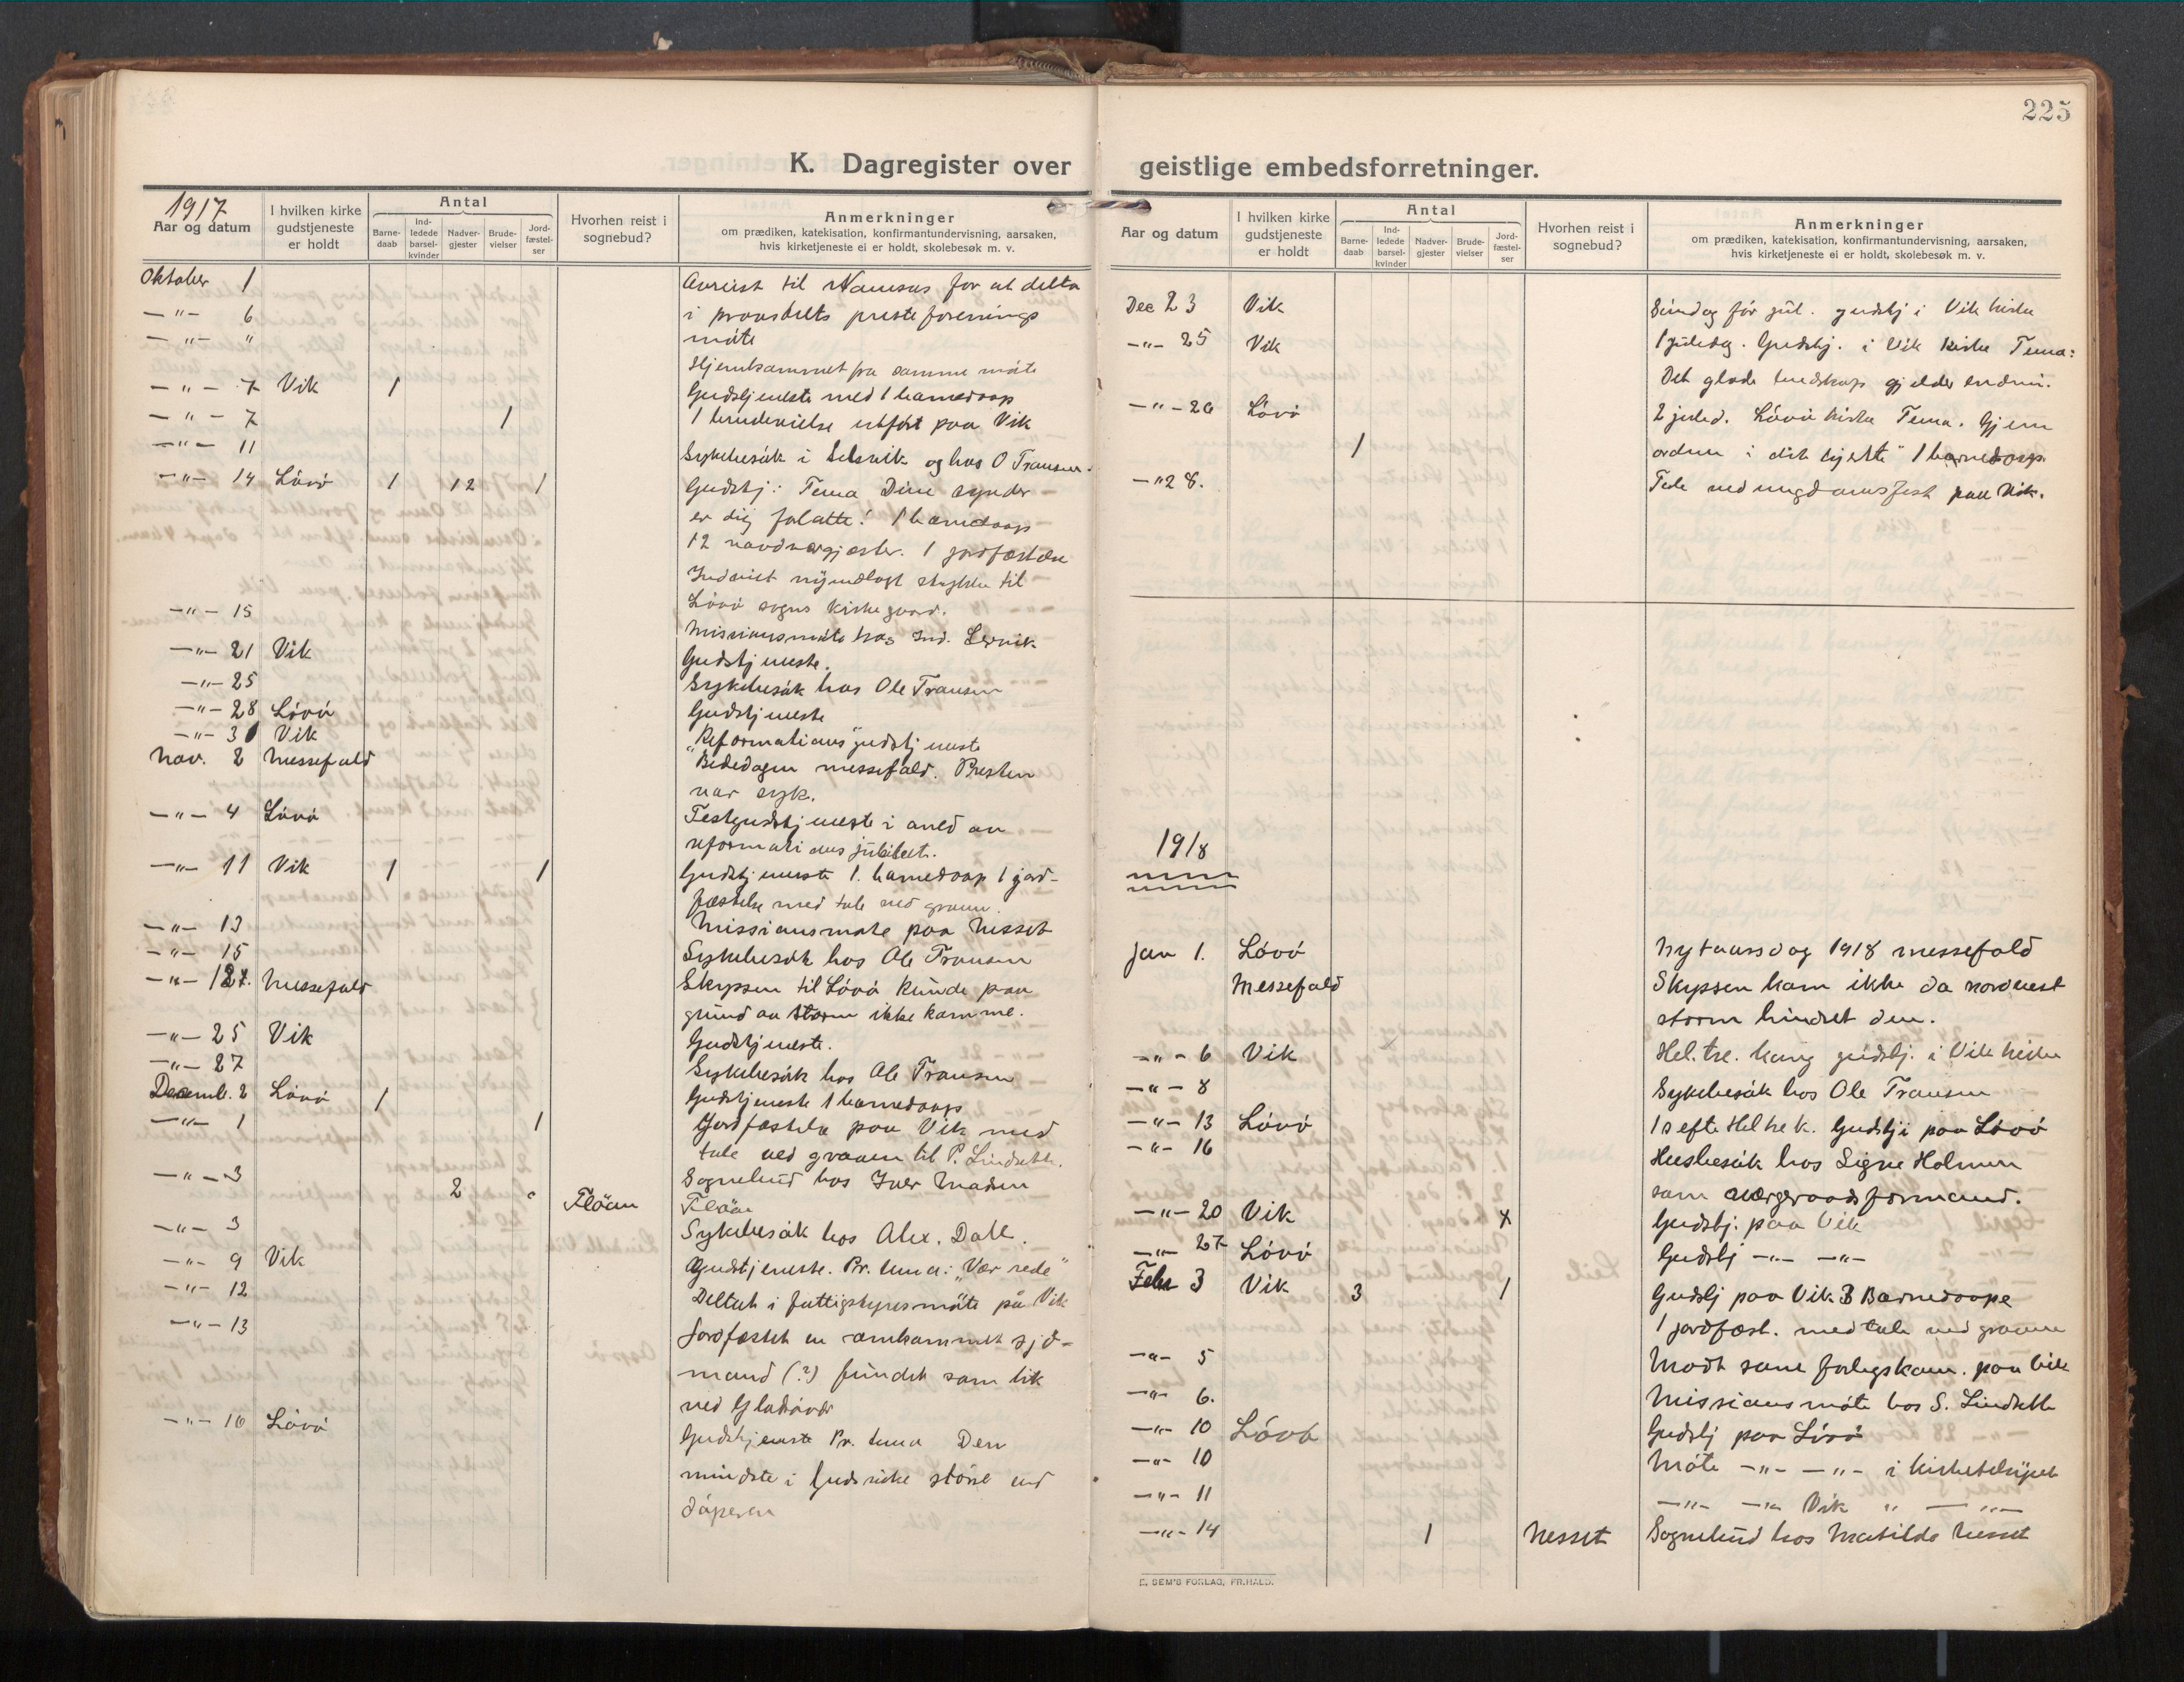 225
K. Dagregister over geistlige embedsforretninger.
1917
Aar og datum
I hvilken kirke gudstjeneste er holdt
Antal
Barne-daab
Ind-ledede barsel-kvinder
Nadver-gjester
Brude-vielser
Jord-fæstel-ser
Hvorhen reist i sognebud?
Anmerkninger
om prædiken, katekisation, konfirmantundervisning, aarsaken,
hvis kirketjeneste ei er holdt, skolebesøk m. v.
Oktober 1 Avreist til Namsos for at delta
—"— 6 i provstiets presteforenings
—"— " møte
Hjemkommet fra samme møte
—"— 7 Vik 1 Gudstjeneste med 1 barnedaap
—"— 7 1 1 brudevielse utført paa Vik
—"— 11 Sykebesøk i Selsvik og hos O Transen.
—"— 14 Lövö 1 12 1 Gudstj: Tema Dine synder
er dig forlatte! 1 barnedaap
12 nardvergjester. 1 jordfæstelse
Indviet nyindlagt stykke til
Lövö sogns kirkegaard.
—"— 15 Missionsmöte hos Ind. Lervik
—"— 21 Vik Gudstjeneste.
—"— 25 Sykebesök hos Ole Transen
—"— 28 Lövö Gudstjeneste
—"— 31 Vik "Reformations"gudstjeneste
Nov. 2 Messefald Bededagen messefald. Presten
var syk.
—"— 4 Lövö Festgudstjeneste i anled av
reformationsjubileet.
—"— 11 Vik 1 1 Gudstjeneste 1. barnedaap 1 jord-
fæstelse med tale ved graven.
—"— 13 Missionsmøte paa Nesset
—"— 15 Sykebesök hos Ole Transen
—"— 18. Messefald Skyssen til Lövö kunde paa
grund av storm ikke komme.
—"— 25 Vik Gudstjeneste.
—"— 27 Sykebesök hos Ole Transen
Decemb. 2 Lövö 1 Gudstjeneste 1 barnedaap
—"— 1 1 Jordfæstelse paa Vik med
tale ved graven til P. Lindseth.
—"— 3 2 Flöan Sognebud hos Iver Madsen
Flöan
—"— 3 Sykebesøk hos Alex. Dahl.
—"— 9 Vik Gudstjeneste. Pr. tema: "Vær rede"
—"— 12 Deltat i fattigstyresmöte på Vik
—"— 13 Jordfæstet en omkommet sjö-
mand (?) fundet som lik
ved Gladövær
—"— 16 Lövö Gudstjeneste Pr. tema Den
mindste i Guds rike större end
döperen
Aar og datum
I hvilken kirke gudstjeneste er holdt
Antal
Barne-daab
Ind-ledede barsel-kvinder
Nadver-gjester
Brude-vielser
Jord-fæstel-ser
Hvorhen reist i sognebud?
Anmerkninger
om prædiken, katekisation, konfirmantundervisning, aarsaken,
hvis kirketjeneste ei er holdt, skolebesøk m. v.
Dec 23 Vik Søndag før jul. gudstj i Vik kirke
—"— 25 Vik 1 juledag. Gudstj. i Vik kirke Tema:
Det glade budskap gjelder endnu.
—"— 26 Lövö 2 juled. Lövö kirke Tema. Gjem
1 ordene i dit hjerte" 1 barnedaap
—"28. Tale ved ungdomsfest paa Vik.
1918
Jan 1. Lövö Nytaarsdag 1918 messefald
Messefald Skyssen kom ikke da nordvest
storm hindret den.
—"— 6 Vik Hel. tre. kong gudstj. i Vik kirke
—"— 8 Sykebesök hos Ole Transen
—"— 13 Lövö 1 s efte Hel tre k. Gudstj i paa Lövö
—"— 16 Husbesök hos Signe Holmen
som værgeraadsformand.
—"— 20 Vik x Gudstj. paa Vik
—"— 27 Lövö Gudstj —"— —"—
Febr 3 Vik 3 1 Gudstj paa Vik 3 Barnedaape
1 jordfæst. med tale ved graven
—"— 5 Mödt som forligskom. paa Vik
—"— 6. Missionsmöte hos S. Lindseth
—"— 10 Lövö Gudstj paa Lövö
—"— 10 Möte —"— —"— i kirketilsynet
—"— 11 —"— —"— Vik " —"—
—"— 14 1 Nesset Sognebud hos Matilde Nesset
E. SEM'S FORLAG, FR.HALD.